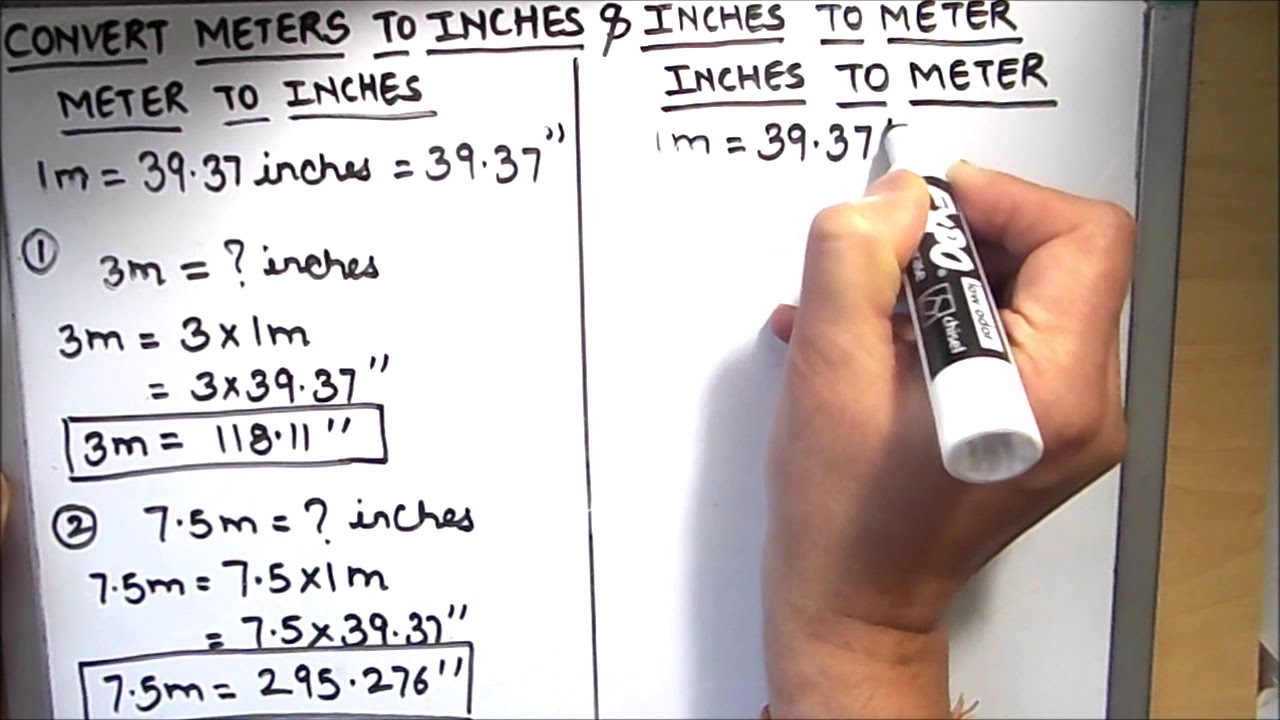 CONVERT METERS TO INCHES & INCHES TO METER
METER TO INCHES
1m = 39.37 inches = 39.37"
① 3m = ? inches
3m = 3 x 1m
= 3 x 39.37"
3m = 118.11"
② 7.5m = ? inches
7.5m = 7.5 x 1m
= 7.5 x 39.37"
7.5m = 295.276"
INCHES TO METER
1m = 39.37
EXPO
low odor
chisel